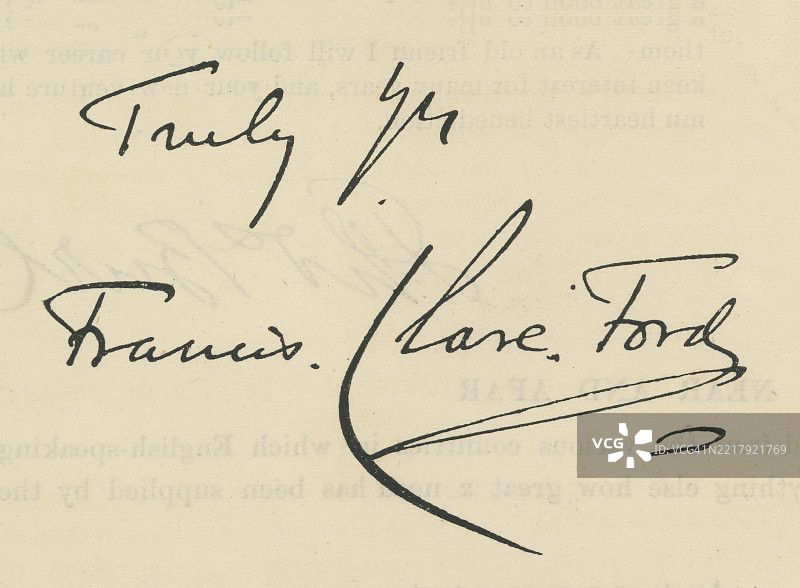 them- As an old friend I will follow your career wi
keen interest for many years, and your new venture h
Truly yrs
Francis. Clare. Ford
NEAR AND AFAR
countries in which English-speaking
ything else how great a need has been supplied by the
VCG
ID: VCG41N2217921769